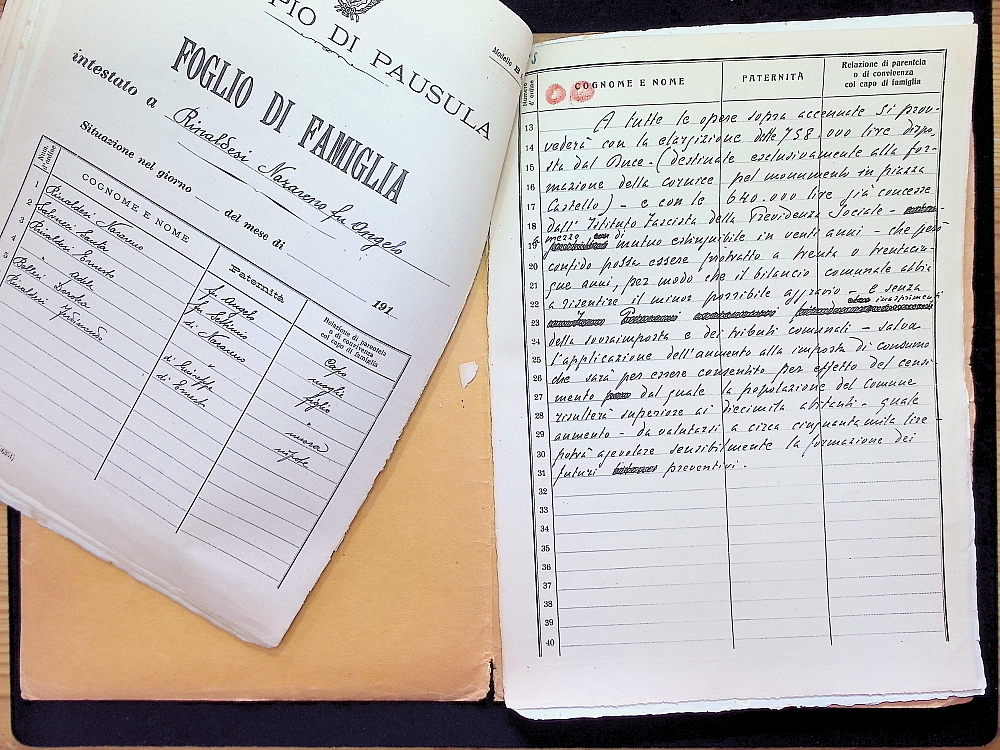 PIO DI PAUSULA
Modello B
FOGLIO DI FAMIGLIA
intestato a Rinaldesi Nazareno fu Angelo
Situazione nel giorno del mese di 191
Num. d'ordine COGNOME E NOME Paternità Relazione di parentela o di convivenza col capo di famiglia
1 Rinaldesi Nazareno fu Angelo Capo
2 Salvucci Santa fu moglie
3 Rinaldesi Ernesto di Nazareno figlio
4 " Adele " "
5 di Giuseppe nuora
Rinaldesi di Ernesto nipote
Numero d'ordine COGNOME E NOME PATERNITÀ Relazione di parentela o di convivenza col capo di famiglia
13 A tutte le opere sopra accennate si prov-
14 vederà con la elargizione delle 758.000 lire dispo-
15 sta dal Duce - (destinate esclusivamente alla for-
16 mazione della cornice pel monumento in piazza
17 Castello) - e con le 640.000 lire già concesse
18 dall'Istituto Fascista della Previdenza Sociale -
19 a mezzo di mutuo estinguibile in venti anni - che però
20 confido possa essere protratto a trenta o trentacin-
21 que anni, per modo che il bilancio comunale abbia
22 a risentire il minor possibile aggravio - e senza
23 inasprimenti
24 della sovraimposta e dei tributi comunali - salva
25 l'applicazione dell'aumento alla imposta di consumo
26 che sarà per essere consentito per effetto del censi-
27 mento dal quale la popolazione del Comune
28 risulterà superiore ai diecimila abitanti - quale
29 aumento - da valutarsi a circa cinquanta mila lire
30 potrà agevolare sensibilmente la formazione dei
31 futuri preventivi.
32
33
34
35
36
37
38
39
40